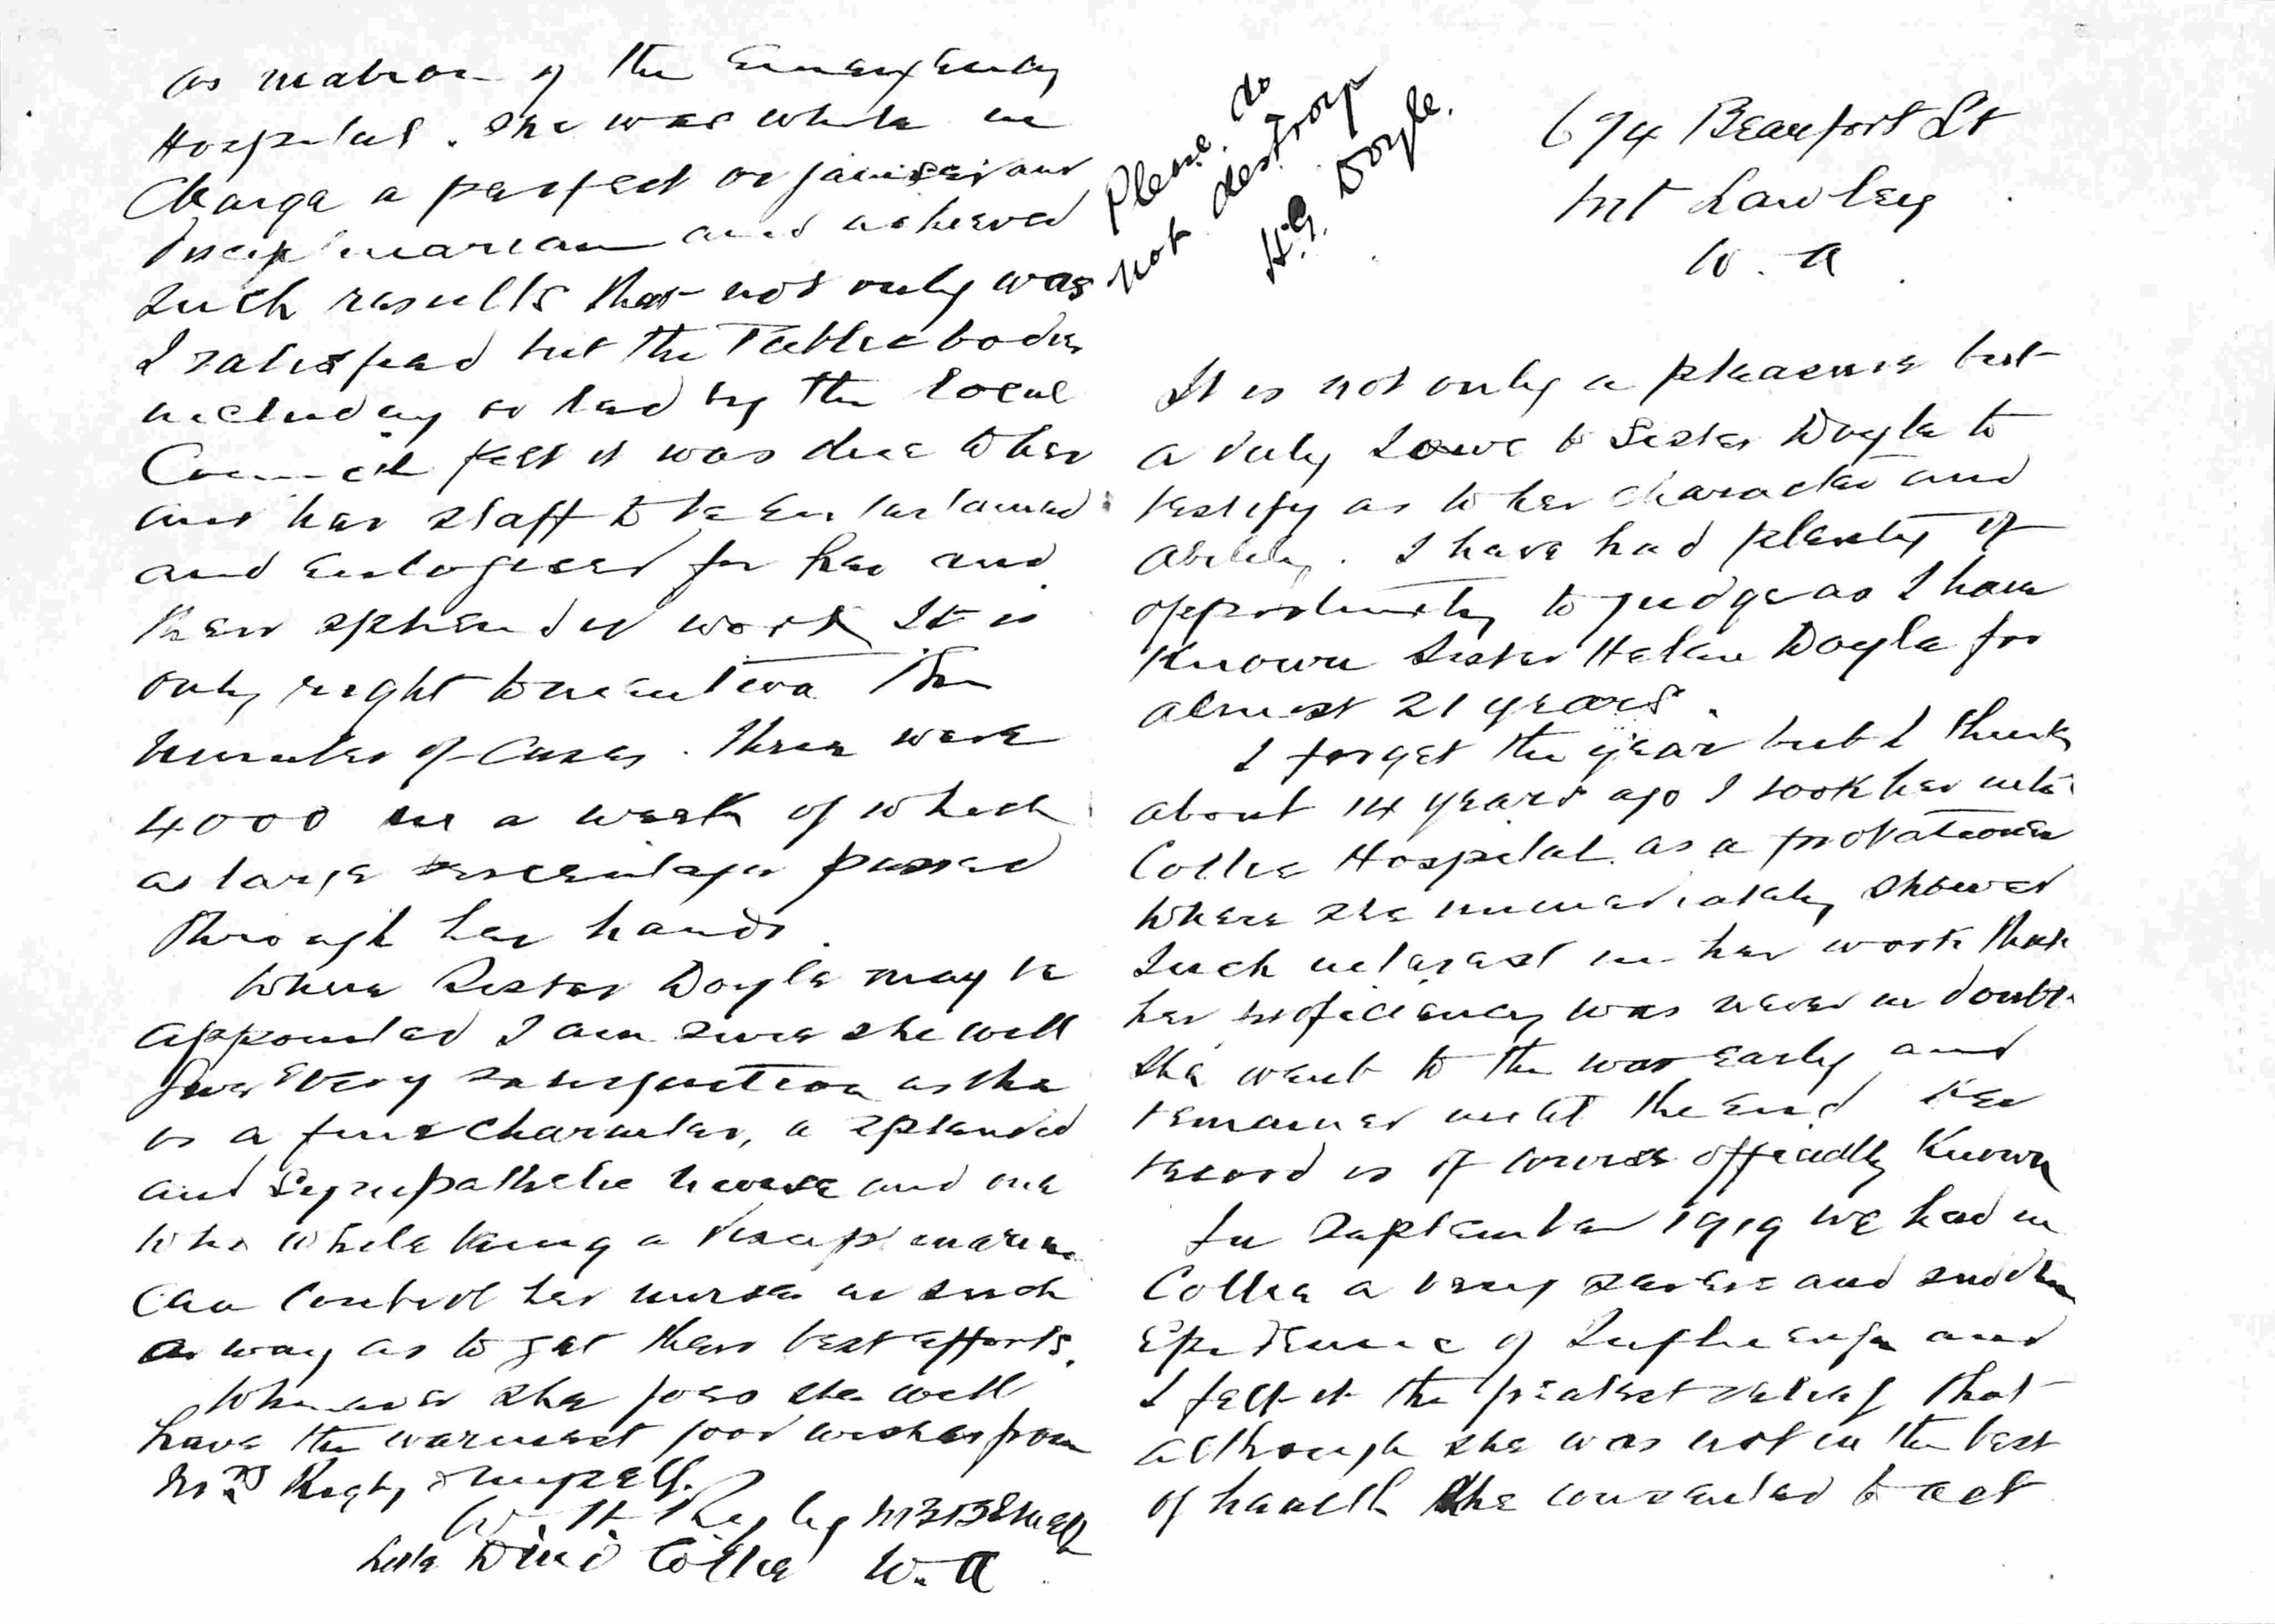 694 Beaufort St
Mt Lawley
W. A.
Please do
not destroy
H.G. Doyle.
It is not only a pleasure but
a duty I owe to Sister Doyle to
testify as to her character and
ability. I have had plenty of
opportunity to judge as I have
known Sister Helen Doyle for
almost 21 years.
I forget the year but I think
about 14 years ago I took her into
Collie Hospital as a probationer
where she immediately showed
such interest in her work that
her proficiency was never in doubt.
She went to the war early and
remained until the end her
record is of course officially known
In September 1919 we had in
Collie a very severe and sudden
Epidemic of Influenza and
I felt it the greatest relief that
although she was not in the best
of health she consented to act
as matron of the Emergency
Hospital. She was while in
charge a perfect organiser and
disciplinarian and achieved
such results that not only was
I satisfied but the Public bodies
including or led by the local
Council felt it was due to her
and her staff to be entertained
and eulogised for her and
their splendid work It is
only right to mention the
number of cases. There were
4000 in a week of which
a large percentage passed
through her hands.
Where Sister Doyle may be
appointed I am sure she will
give every satisfaction as she
is a fine character, a splendid
and sympathetic nurse and one
who while being a disciplinarian
can control her nurses in such
a way as to get their best efforts.
Wherever she goes she will
have the warmest good wishes from
Mrs Rigby & myself.
W. H. Rigby MB BS Melb
Collie W. A.